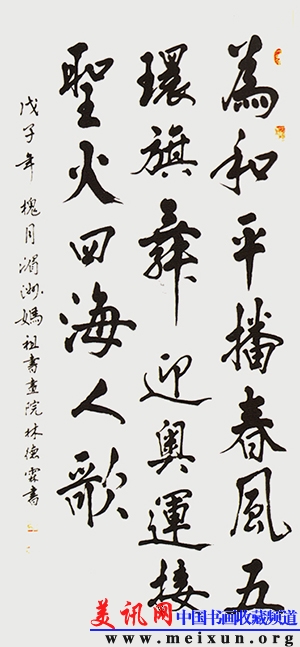 為和平播春風五
環旗舞迎奧運接
聖火四海人歌
戊子年槐月湄洲媽祖書畫院林德霖書
美讯网 中国书画收藏频道
www.meixun.org